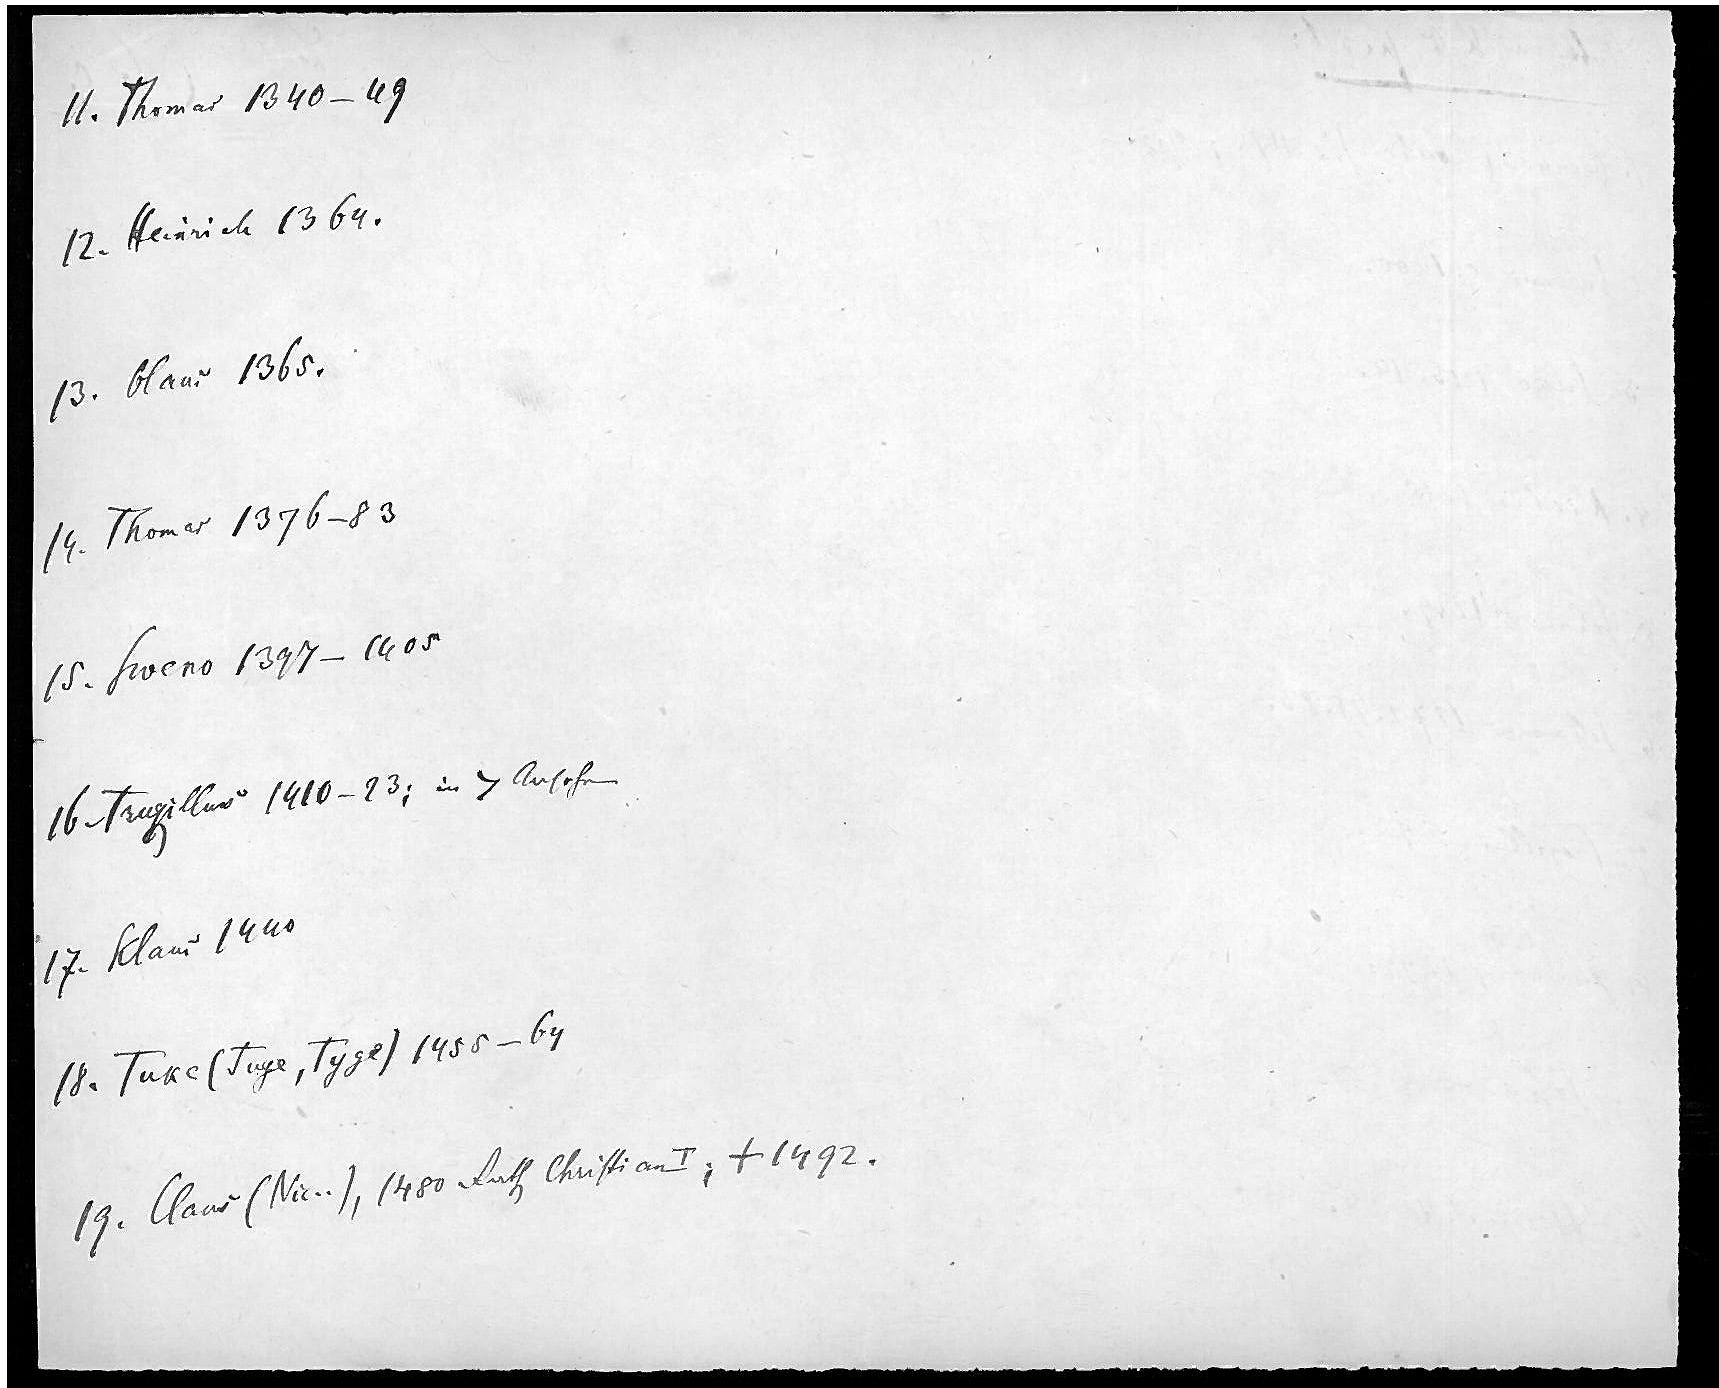 11. Thomas 1340–49
12. Heinrich 1364.
13. Olaus 1365.
14. Thomas 1376–83
15. Sweno 1397–1405
16. Trugillus 1410–23; in 7
17. Klaus 1440
18. Tuke (Tuge, Tyge) 1455–64
19. Claus (Nic..), 1480 Christian I; + 1492.